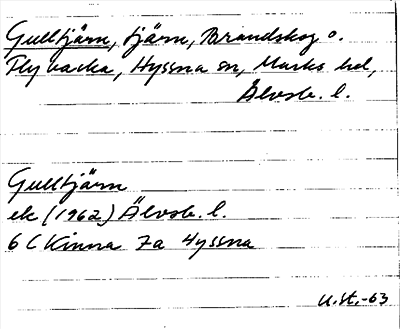 Gulltjärn, tjärn, Brandskog o.
Flybacka, Hyssna sn, Marks hd,
Älvsb. l.
Gulltjärn
ek (1962) Älvsb. l.
6 C Kinna 7a Hyssna
U.St.-63